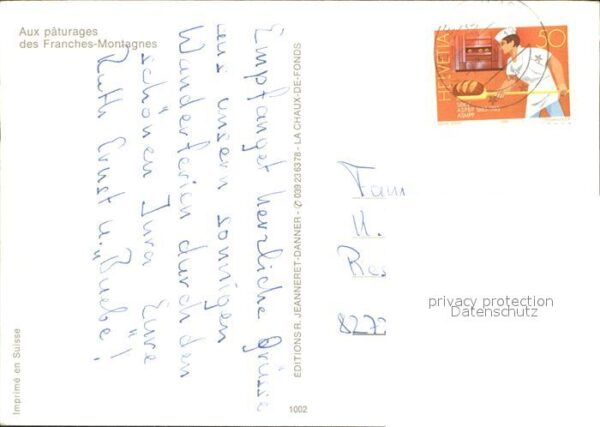 Aux pâturages
des Franches-Montagnes
Empfanget herzliche Grüsse
aus unsern sonnigen
Wanderferien durch den
schönen Jura Eure
Ruth Ernst u. "Buebe"!
EDITIONS R. JEANNERET-DANNER - ✆ 039 236378 - LA CHAUX-DE-FONDS
Imprimé en Suisse
1002
HELVETIA
50
Fam
U.
Bes
8272
privacy protection
Datenschutz